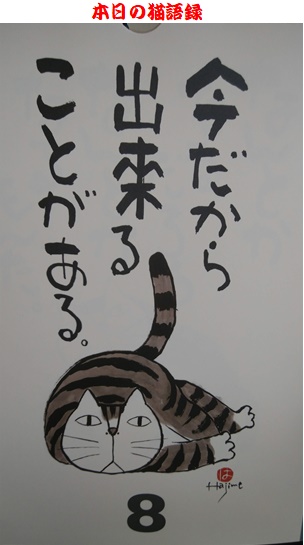 本日の猫語録
今だから
出来る
ことがある。
は
Hajime
8